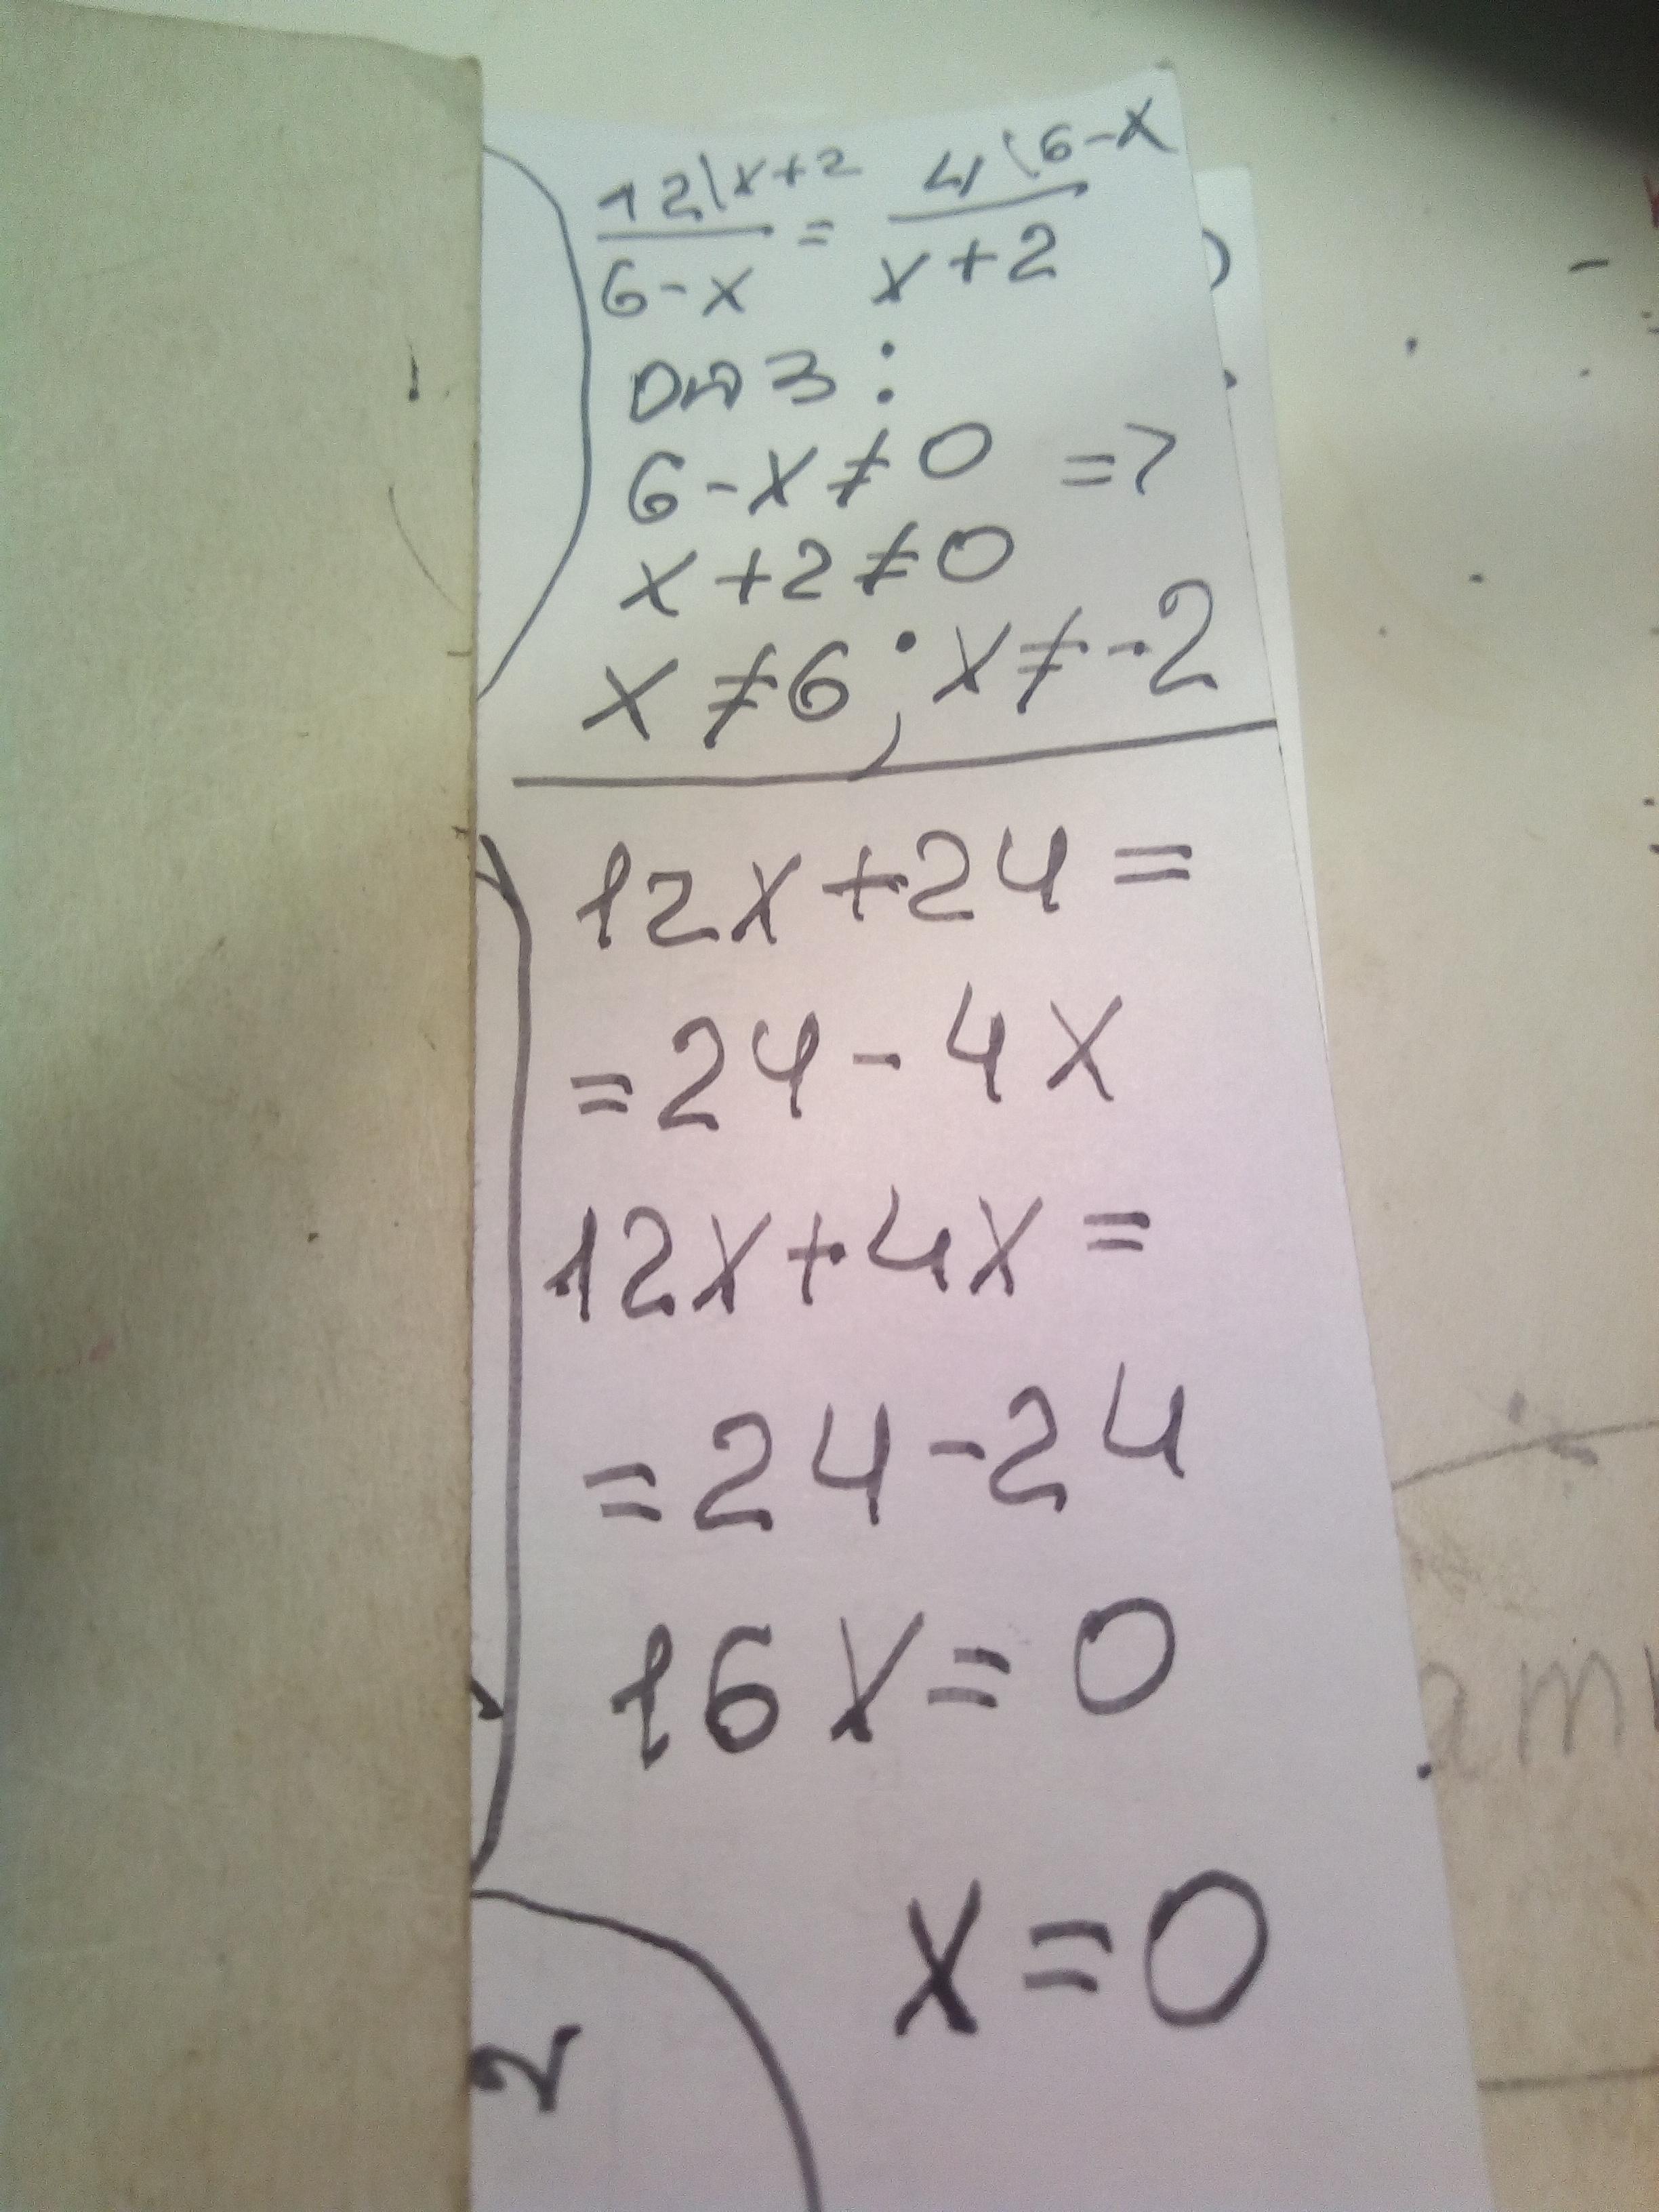 12\x+2 / 6-x = 4\6-x / x+2
ОДЗ:
6-x≠0 =>
x+2≠0
x≠6; x≠-2
12x+24=
=24-4x
12x+4x=
=24-24
16x=0
x=0